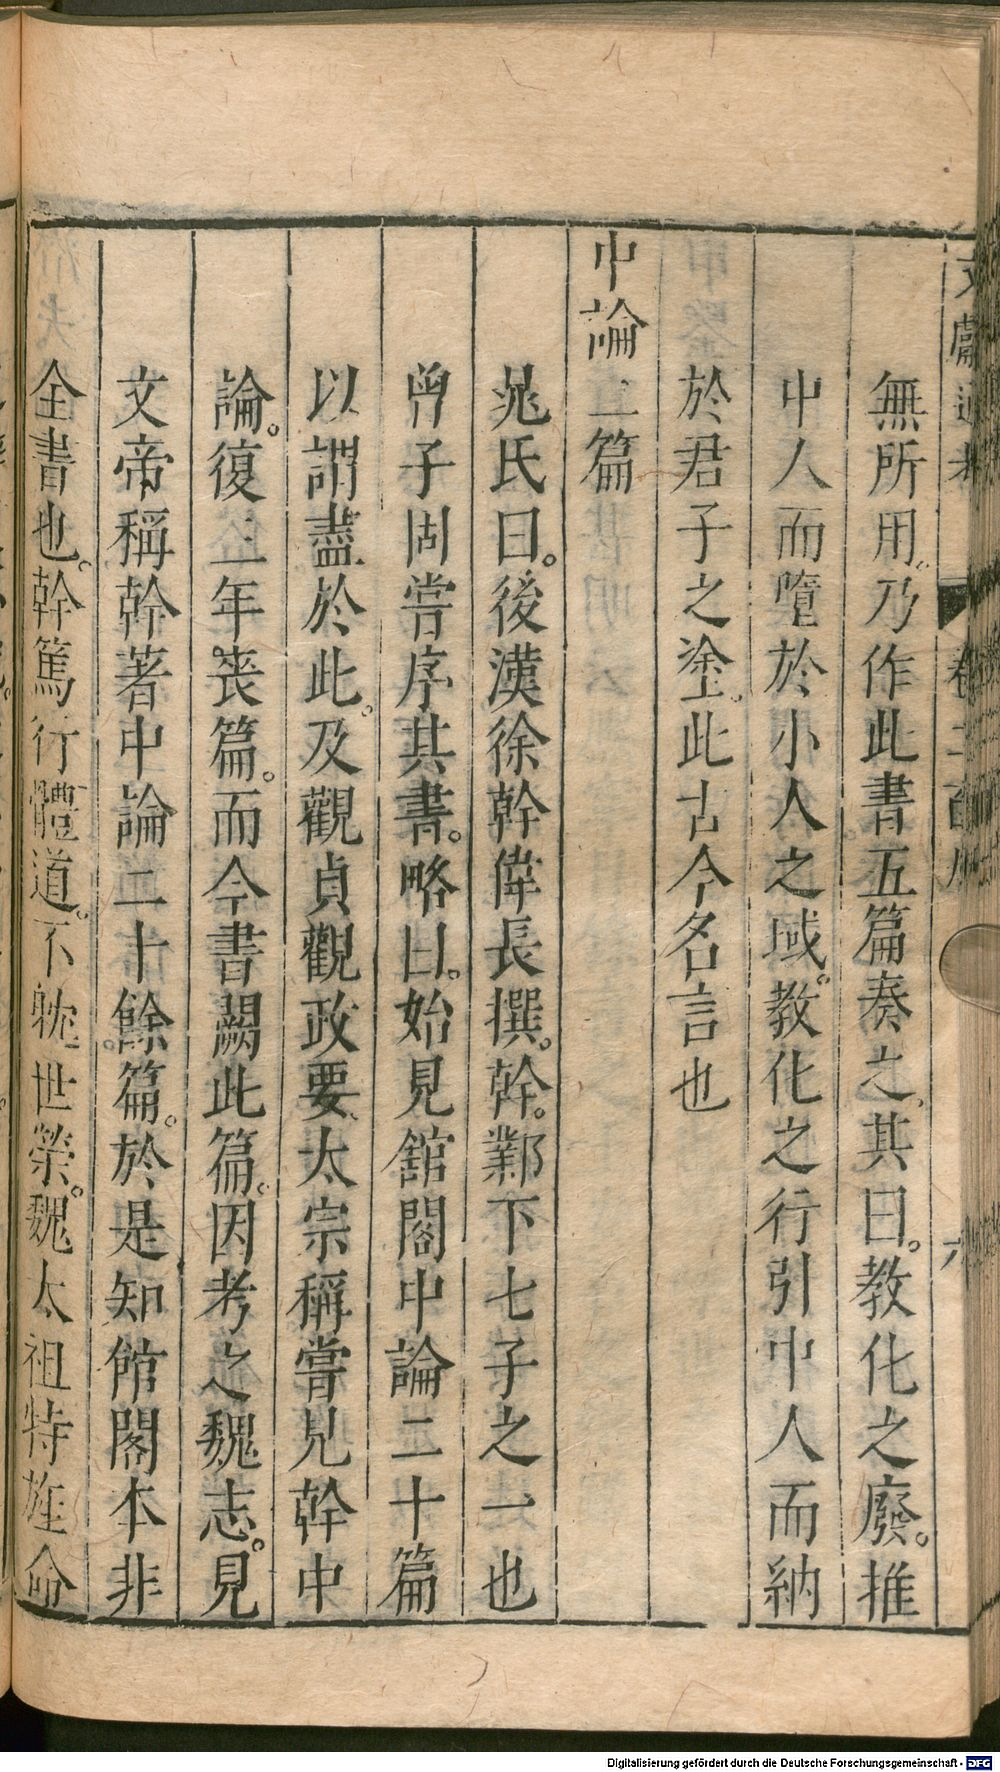 無所用。乃作此書五篇奏之。其曰。教化之廢。推
中人而墮於小人之域。教化之行引中人而納
於君子之塗。此古今名言也
中論二篇
晁氏曰。後漢徐幹偉長撰。幹。鄴下七子之一也
曾子固嘗序其書。略曰。始見舘閣中論二十篇
以謂盡於此。及觀貞觀政要、太宗稱嘗見幹中
論。復三年喪篇。而今書闕此篇。因考之魏志。見
文帝稱幹著中論二十餘篇。於是知館閣本非
全書也。幹篤行體道。不躭世榮。魏太祖特旌命
Digitalisierung gefördert durch die Deutsche Forschungsgemeinschaft - DFG